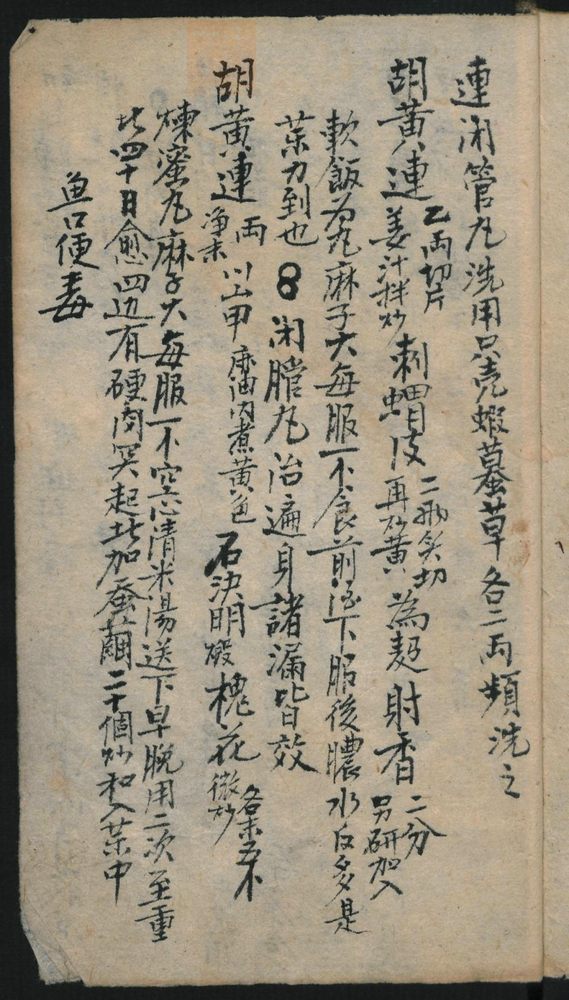 連闲管丸洗用只壳蝦蟇草各二两頻洗之
胡黄連乙両切片姜汁拌炒刺蝟皮二両炙切再炒黄為麪射香二分另研加入
軟飯為丸麻子大每服一不食前酒下服後膿水反多是
菓力到也 8 闲膛丸治遍身諸漏皆效
胡黄連両净末川山甲麻油内煮黄色石决明煅槐花微炒各末五不
煉蜜丸麻子大每服一不空心清米湯送下早晚用二次至重
此四十日愈四边有硬肉哭起此加蚕繭二十個炒和入菓中
魚口便毒